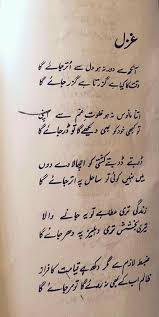 غزل
آنکھ سے دور نہ ہو دل سے اتر جائے گا
وقت کا کیا ہے گزرتا ہے گزر جائے گا
اتنا مانوس نہ ہو خلوتِ غم سے اپنی
تو کبھی خود کو بھی دیکھے گا تو ڈر جائے گا
ڈوبتے ڈوبتے کشتی کو اچھالا دے دوں
میں نہیں کوئی تو ساحل پہ اتر جائے گا
زندگی تری عطا ہے تو یہ جانے والا
تیری بخشش تری دہلیز پہ دھر جائے گا
ضبط لازم ہے مگر دکھ ہے قیامت کا فراز
ظالم اب کے بھی نہ روئے گا تو مر جائے گا